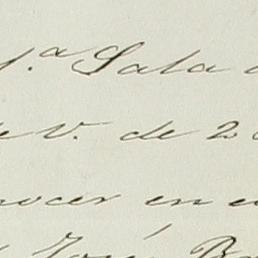 1.ª Sala
V. de 2
nocer en
José